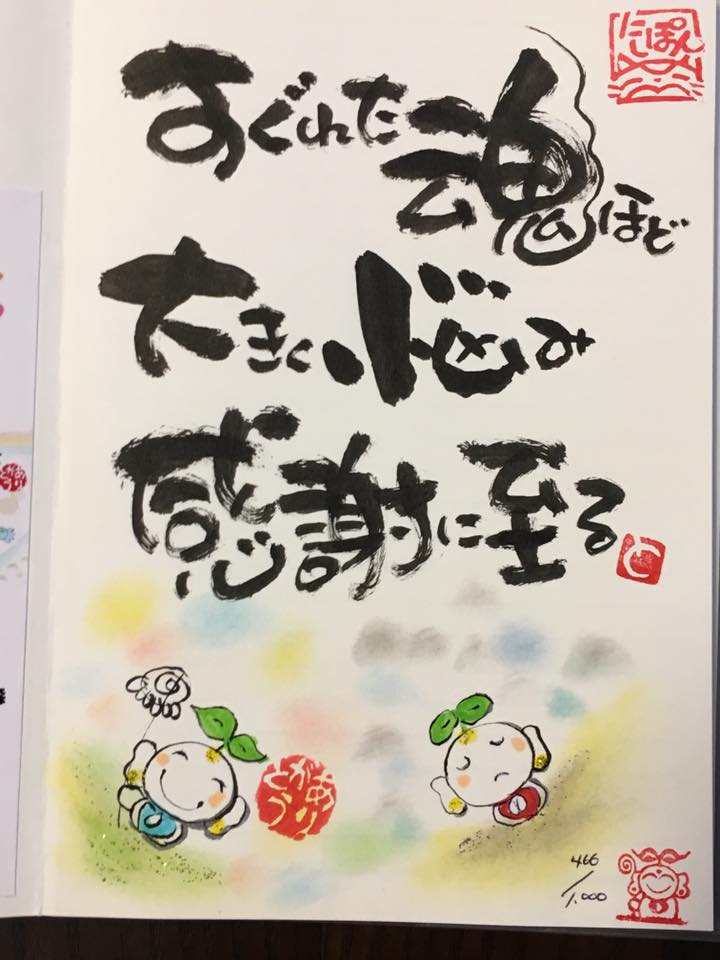 すぐれた魂ほど
大きく悩み
感謝に至る
にっぽん
ありがとう
466/1.000